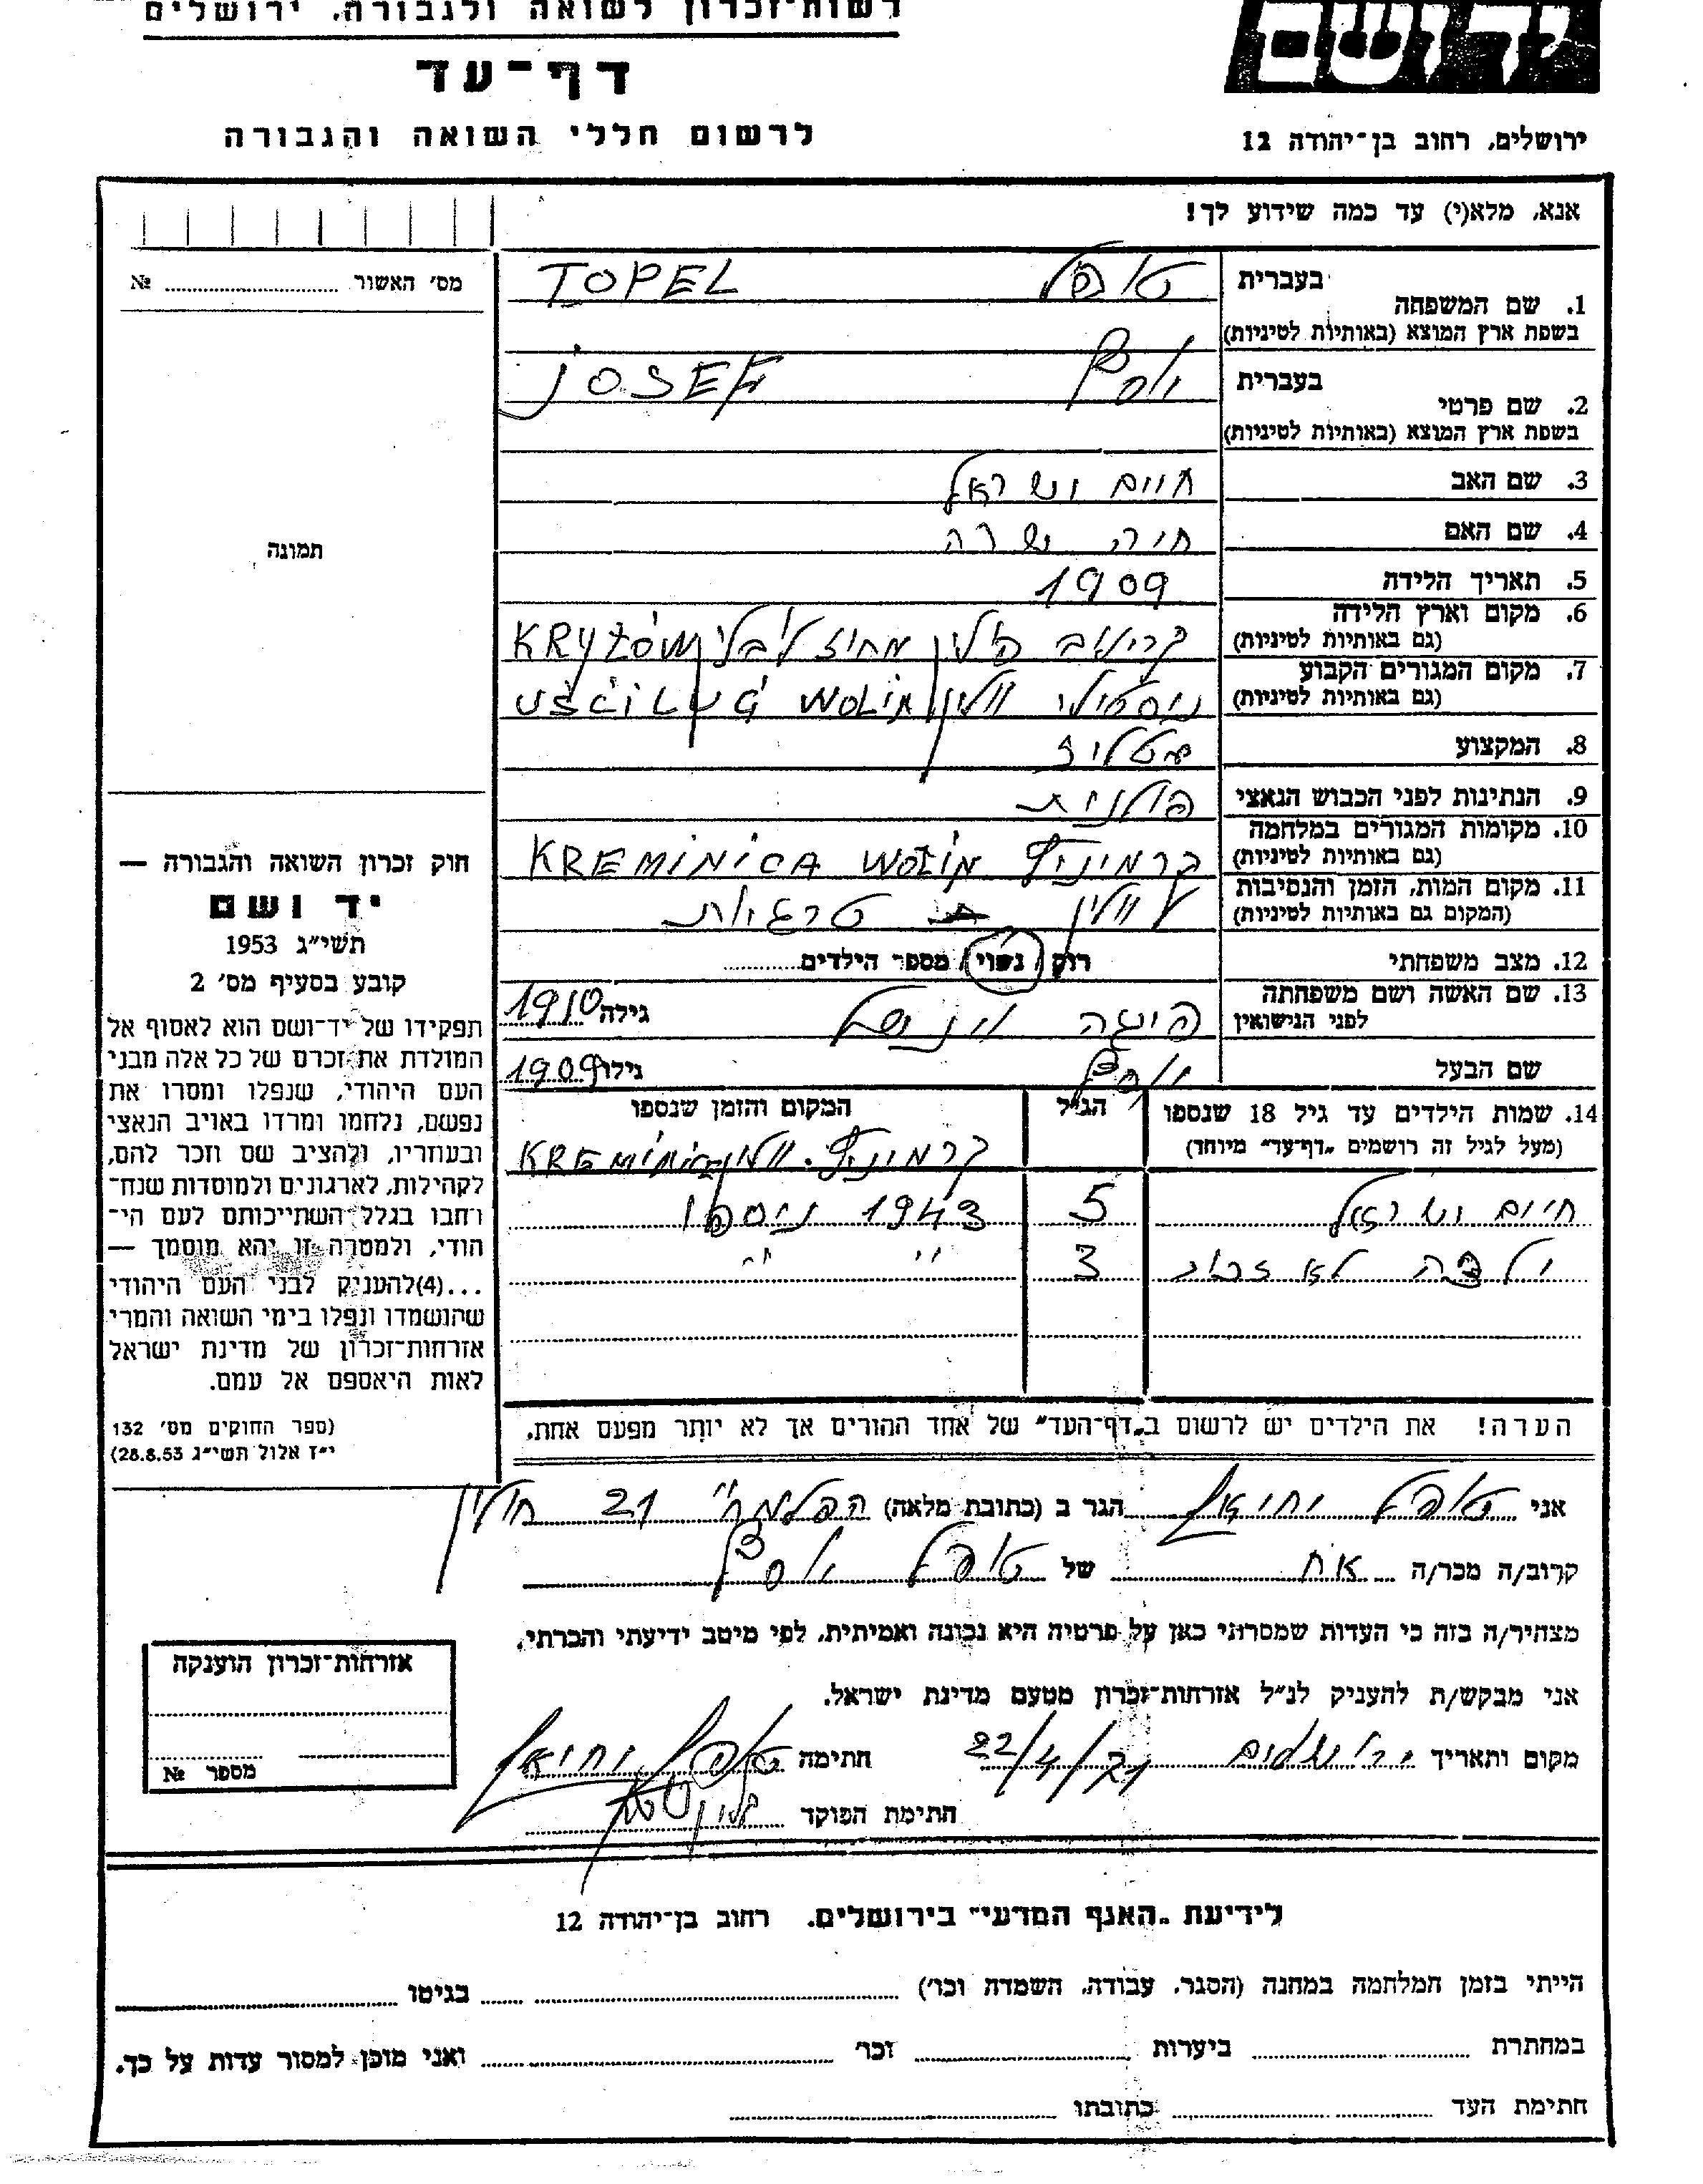 רשות-זכרון לשואה ולגבורה, ירושלים
דף-עד
לרשום חללי השואה והגבורה
ירושלים, רחוב בן-יהודה 12
אנא, מלא(י) עד כמה שידוע לך!
מס׳ האשור № 
תמונה
בעברית טופל TOPEL
1. שם המשפחה
בשפת ארץ המוצא (באותיות לטיניות)
בעברית יוסף JOSEF
2. שם פרטי
בשפת ארץ המוצא (באותיות לטיניות)
3. שם האב חיים ישראל
4. שם האם חיה שרה
5. תאריך הלידה 1909
6. מקום וארץ הלידה
(גם באותיות לטיניות) פולין מחוז KRYŻÓW
7. מקום המגורים הקבוע
(גם באותיות לטיניות) UŚCIŁUG WOLIN
8. המקצוע
9. הנתינות לפני הכבוש הנאצי פולנית
10. מקומות המגורים במלחמה
(גם באותיות לטיניות) KREMINICA WOŁIN
11. מקום המות, הזמן והנסיבות
(המקום גם באותיות לטיניות)
12. מצב משפחתי רוק / נשוי / מספר הילדים
13. שם האשה ושם משפחתה
לפני הנישואין פייגה גילה 1910
שם הבעל יוסף גילו 1909
14. שמות הילדים עד גיל 18 שנספו הגיל המקום והזמן שנספו
(מעל לגיל זה רושמים "דף-עד" מיוחד)
חיים ישראל 5 1943 ניספו
ילדה לא זכור 3 " "
הערה! את הילדים יש לרשום ב"דף-העד" של אחד ההורים אך לא יותר מפעם אחת.
חוק זכרון השואה והגבורה —
יד ושם
תשי״ג 1953
קובע בסעיף מס׳ 2
תפקידו של יד-ושם הוא לאסוף אל
המולדת את זכרם של כל אלה מבני
העם היהודי, שנפלו ומסרו את
נפשם, נלחמו ומרדו באויב הנאצי
ובעוזריו, ולהציב שם וזכר להם,
לקהילות, לארגונים ולמוסדות שנח-
רחבו בגלל השתייכותם לעם הי-
הודי, ולמטרה זו יהא מוסמך —
...(4)להעניק לבני העם היהודי
שהושמדו ונפלו בימי השואה והמרי
אזרחות-זכרון של מדינת ישראל
לאות היאספם אל עמם.
(ספר החוקים מס׳ 132
י״ז אלול תשי״ג 28.8.53)
אני טופל יחיאל הגר ב (כתובת מלאה) הפלמח 21 חולון
קרוב/ה מכר/ה אח של טופל יוסף
מצהיר/ה בזה כי העדות שמסרתי כאן על פרטיה היא נכונה ואמיתית, לפי מיטב ידיעתי והכרתי.
אני מבקש/ת להעניק לנ״ל אזרחות-זכרון מטעם מדינת ישראל.
מקום ותאריך ירושלים 22/4/71 חתימה טופל יחיאל
חתימת הפוקד
אזרחות-זכרון הוענקה
מספר №
לידיעת "האגף המדעי" בירושלים, רחוב בן-יהודה 12
הייתי בזמן המלחמה במחנה (הסגר, עבודה, השמדה וכו׳) בגיטו
במחתרת ביערות וכו׳ ואני מוכן למסור עדות על כך.
חתימת העד כתובתו